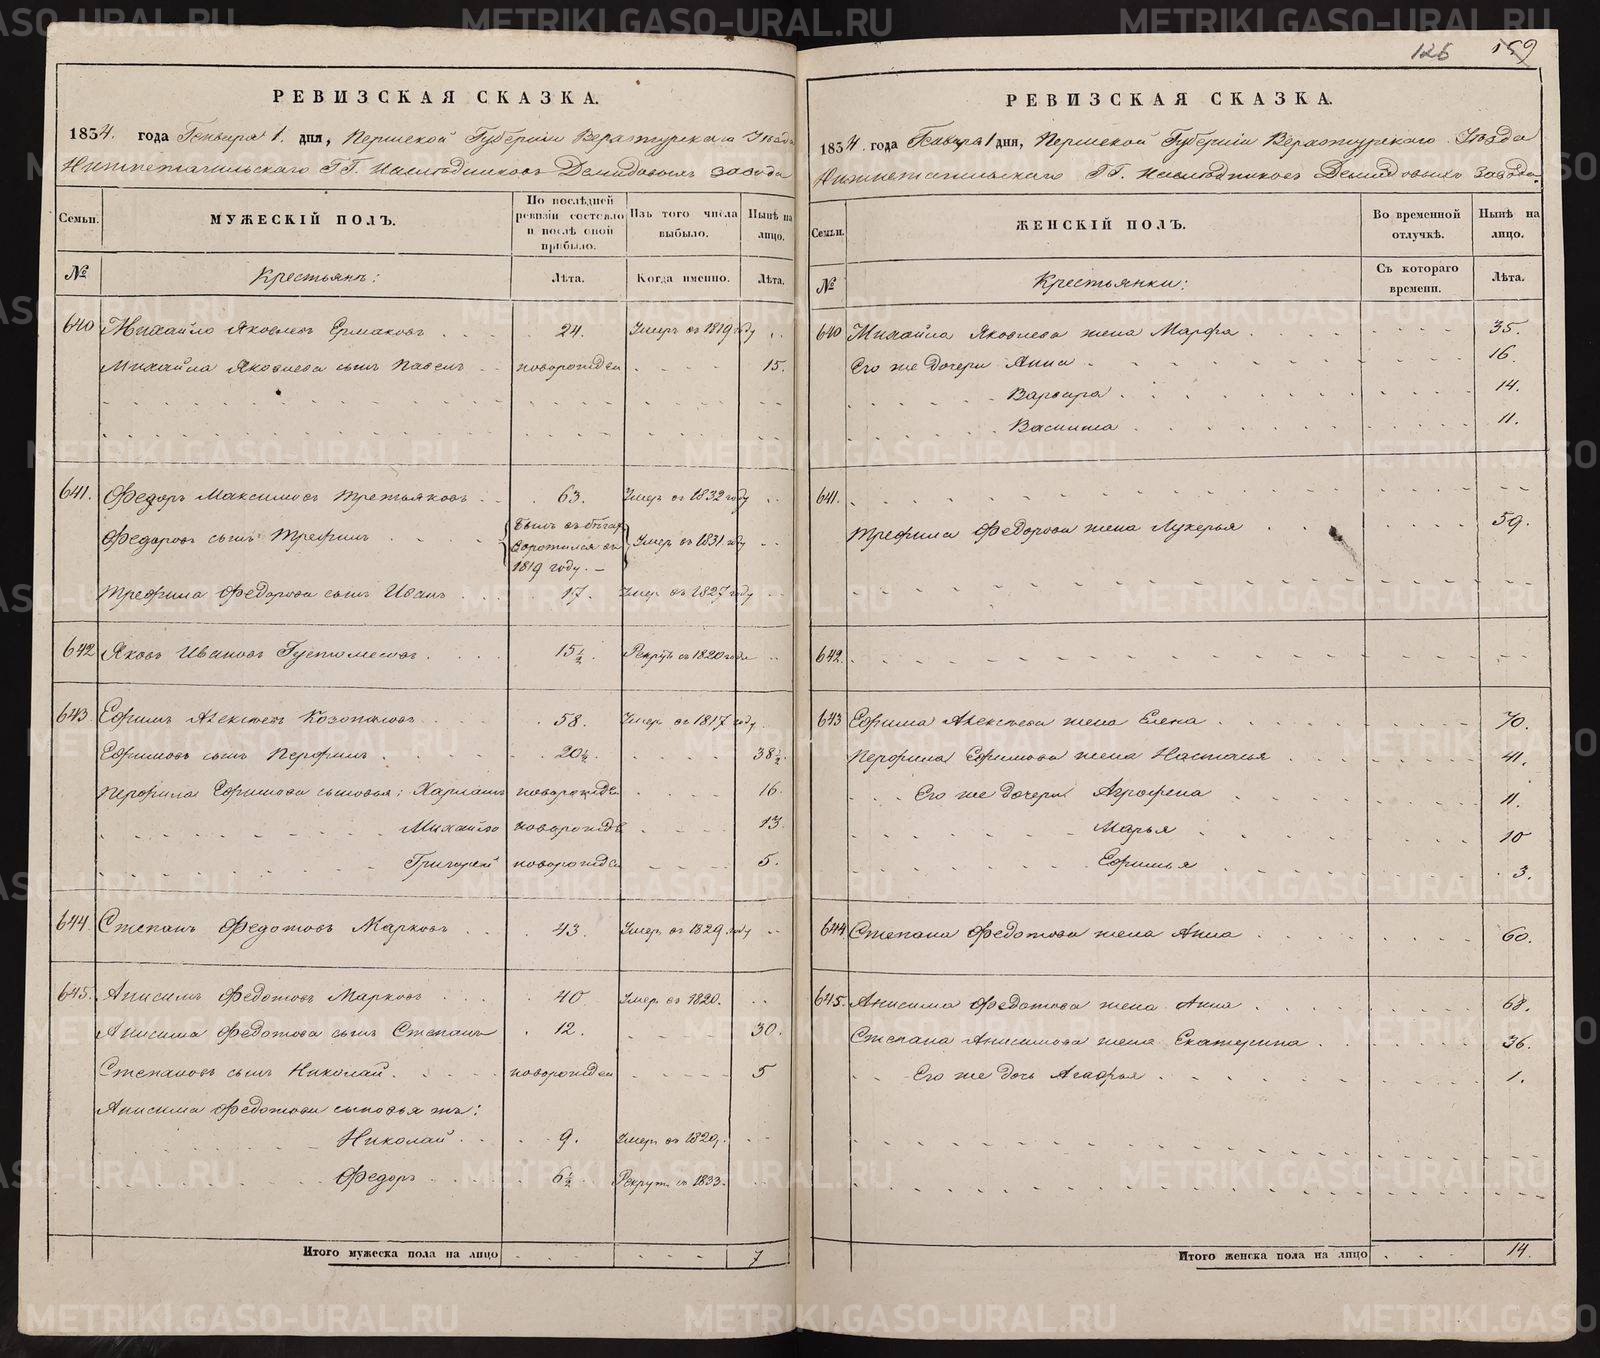 125 159
РЕВИЗСКАЯ СКАЗКА.
1834. года Генваря 1. дня, Пермской Губерніи Верхотурскаго Уѣзда
Нижнетагильскаго ГГ. Наслѣдниковъ Демидовыхъ завода
Семьи.
МУЖЕСКІЙ ПОЛЪ.
По послѣдней ревизіи состояло и послѣ оной прибыло.
Изъ того числа выбыло.
Нынѣ на лицо.
№
Крестьянъ:
Лѣта.
Когда именно.
Лѣта.
640 Михайло Яковлевъ Ермаковъ 24. Умеръ въ 1819 году
Михайла Яковлева сынъ Павелъ новорожден 15.
641. Федоръ Максимовъ Третьяковъ 63. Умер въ 1832 году
Федоровъ сынъ Трефилъ Былъ в бѣгах воротился въ 1819 году. Умер въ 1831 году
Трефила Федорова сынъ Иванъ 17. Умер въ 1827 году
642 Яковъ Ивановъ Густомесовъ 15½. Рекрут с 1820 года
643. Ефимъ Алексѣевъ Козопаловъ 58. Умер въ 1817 году
Ефимовъ сынъ Перфилъ 20½ 38½.
Перфила Ефимова сыновья: Харламъ новорожде 16.
Михайло новорожде 13.
Григорей новорожде 5.
644. Степанъ Федотовъ Марковъ 43. Умер въ 1829 году
645. Анисимъ Федотовъ Марковъ 40 Умер въ 1820.
Анисима Федотова сынъ Степанъ 12. 30.
Степановъ сынъ Николай новорожден 5
Анисима Федотова сыновья тѣ:
Николай 9. Умер въ 1820.
Федоръ 6½ Рекрут с 1833.
Итого мужеска пола на лицо 7
РЕВИЗСКАЯ СКАЗКА.
1834. года Генваря 1 дня, Пермской Губерніи Верхотурскаго Уѣзда
Нижнетагильскаго ГГ. Наслѣдниковъ Демидовыхъ завода.
Семьи.
ЖЕНСКІЙ ПОЛЪ.
Во временной отлучкѣ.
Нынѣ на лицо.
№
Крестьянки:
Съ котораго времени.
Лѣта.
640 Михайла Яковлева жена Марфа 35.
Его же дочери Анна 16.
Варвара 14.
Васинна 11.
641.
Трефила Федорова жена Лукерья 59.
642.
643 Ефима Алексѣева жена Елена 70.
Перфила Ефимова жена Настасья 41.
Его же дочери Аграфена 11.
Марья 10
Ефимья 3.
644 Степана Федотова жена Анна 60.
645. Анисима Федотова жена Анна 68.
Степана Анисимова жена Екатерина 36.
Его же дочь Агафья 1.
Итого женска пола на лицо 14.
METRIKI.GASO-URAL.RU